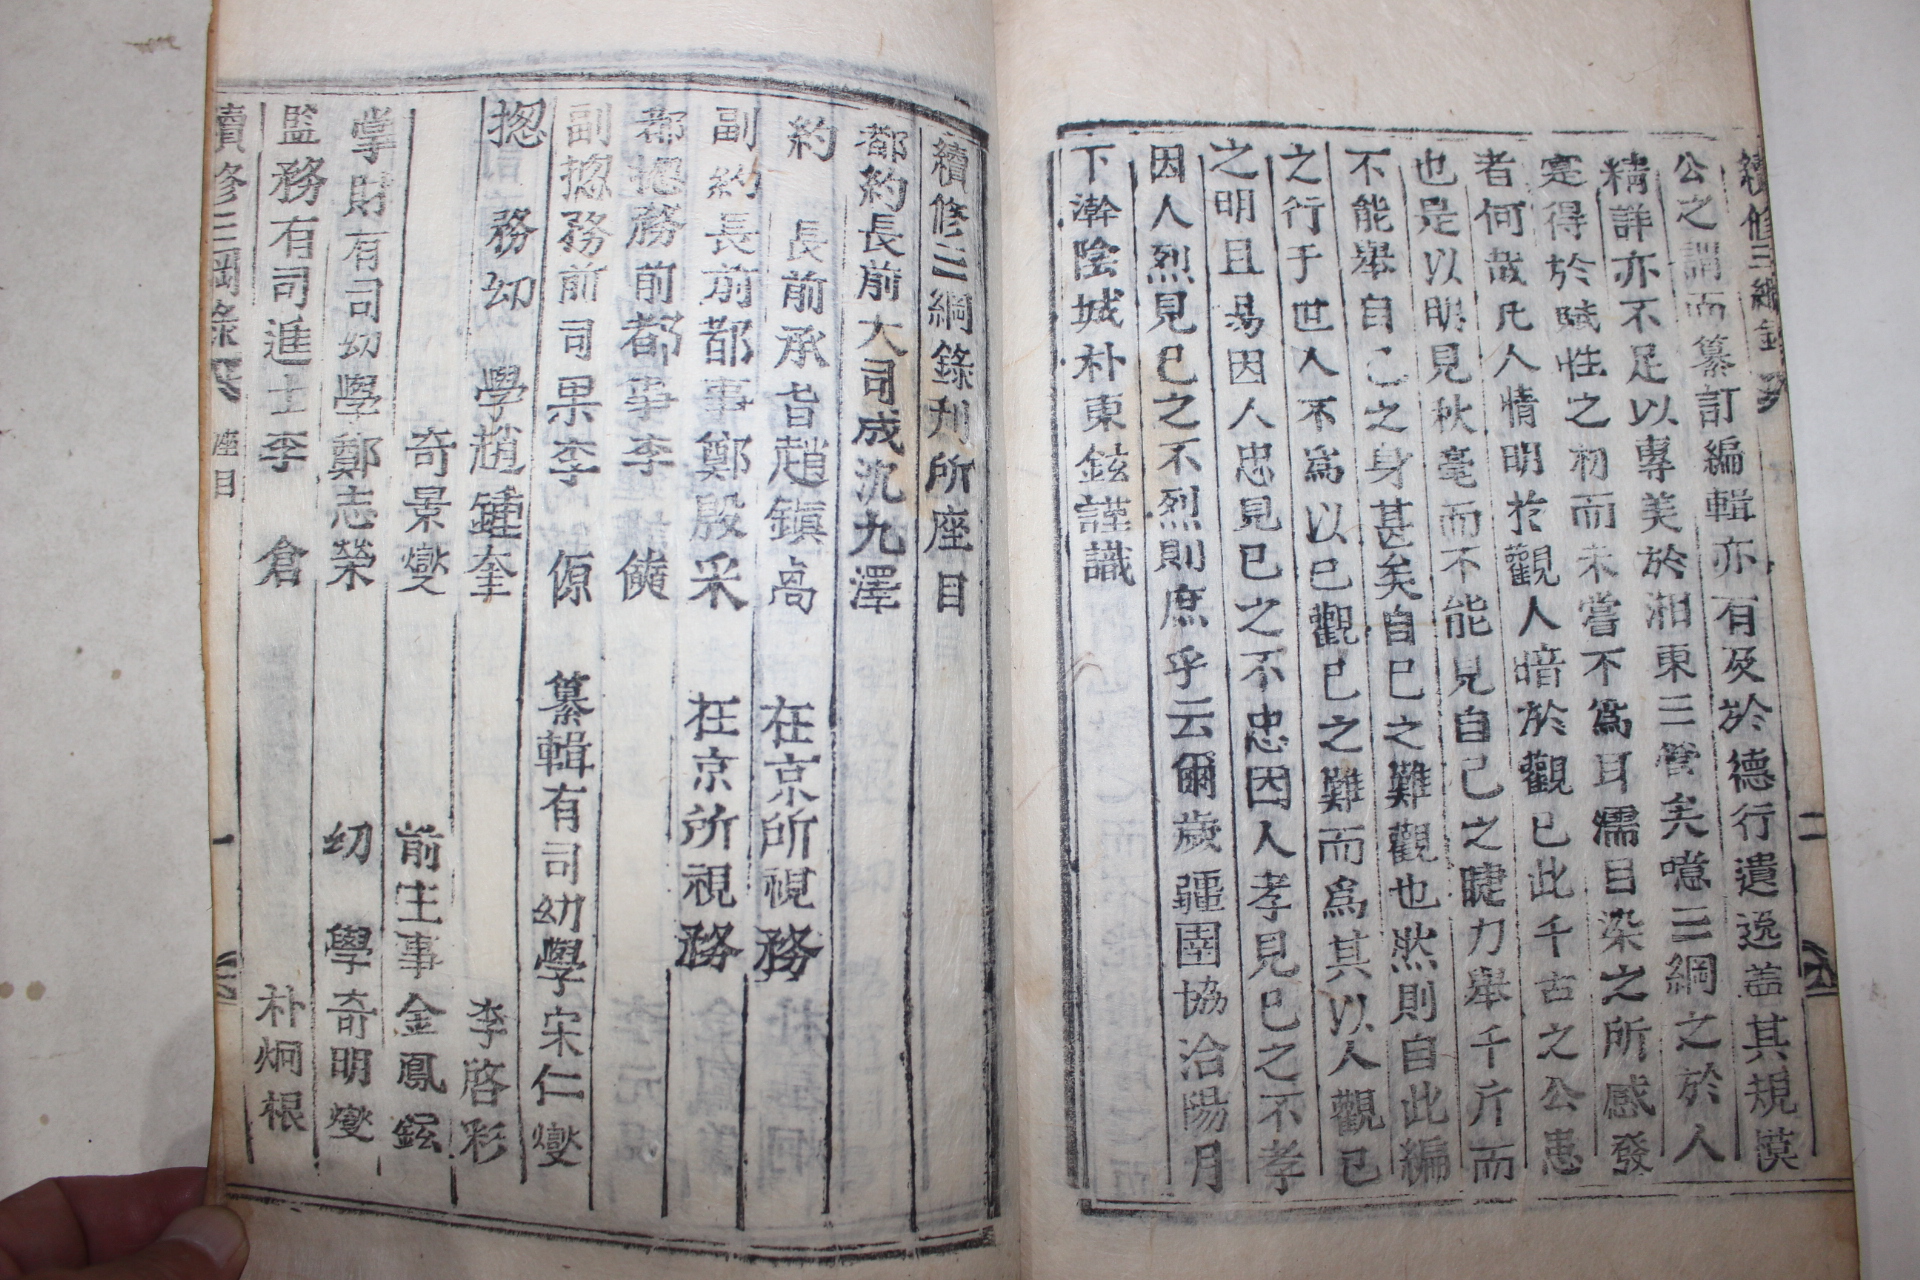 續修三綱錄
二
公之謂而纂訂編輯亦有及於德行遺逸盖其規模
精詳亦不足以專美於湘東三管矣噫三綱之於人
寔得於賦性之初而未嘗不爲耳濡目染之所感發
者何哉凡人情明於觀人暗於觀已此千古之公患
也是以明見秋毫而不能見自已之睫力舉千斤而
不能舉自已之身甚矣自已之難觀也然則自此編
之行于世人不爲以已觀已之難而爲其以人觀已
之明且易因人忠見已之不忠因人孝見已之不孝
因人烈見已之不烈則庶乎云爾歲疆圉協洽陽月
下澣陰城朴東鉉謹識
續修三綱錄刋所座目
都約長前大司成沈九澤
約　長前承旨趙鎭卨　在京所視務
副約長前都事鄭殷采　在京所視務
都摠務前都事李　儐
副摠務前司果李　傆　纂輯有司幼學宋仁燮
摠　務幼　學趙鍾奎　李啓彩
奇景燮　前主事金鳳鉉
掌財有司幼學鄭志榮　幼　學奇明燮
監務有司進士李　倉　朴炯根
續修三綱錄　座目　一